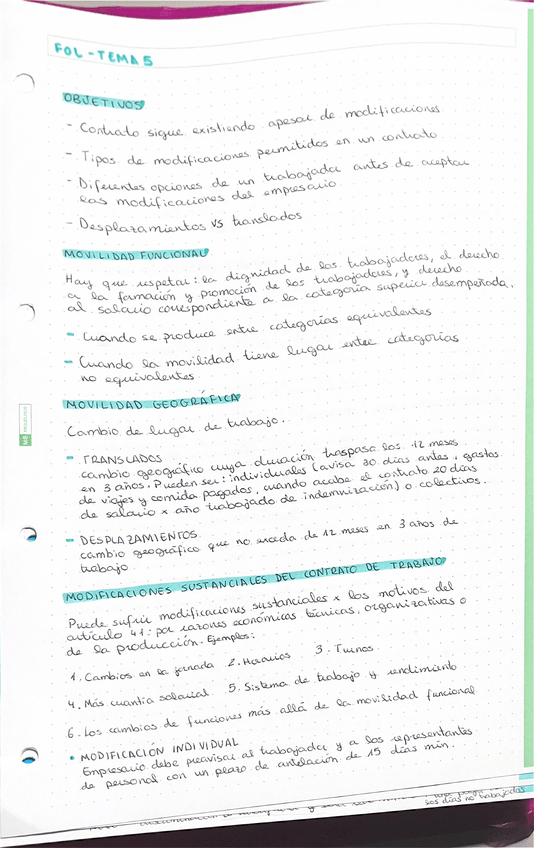 FOL - TEMA 5
OBJETIVOS
- Contrato sigue existiendo apesar de modificaciones
- Tipos de modificaciones permitidos en un contrato
- Diferentes opciones de un trabajador antes de aceptar
las modificaciones del empresario
- Desplazamientos VS translados
MOVILIDAD FUNCIONAL
Hay que respetar: la dignidad de los trabajadores, el derecho
a la formación y promoción de los trabajadores, y derecho
al salario correspondiente a la categoría superior desempeñada.
- Cuando se produce entre categorías equivalentes
- Cuando la movilidad tiene lugar entre categorías
no equivalentes
MOVILIDAD GEOGRÁFICA
Cambio de lugar de trabajo.
- TRANSLADOS
cambio geográfico cuya duración traspasa los 12 meses
en 3 años. Pueden ser: individuales (avisa 30 días antes, gastos
de viajes y comida pagados, cuando acabe el contrato 20 días
de salario x año trabajado de indemnización) o colectivos.
- DESPLAZAMIENTOS
cambio geográfico que no exceda de 12 meses en 3 años de
trabajo
MODIFICACIONES SUSTANCIALES DEL CONTRATO DE TRABAJO
Puede sufrir modificaciones sustanciales x los motivos del
artículo 41: por razones económicas técnicas, organizativas o
de la producción. Ejemplos:
1. Cambios en la jornada 2. Horarios 3. Turnos
4. Más cuantía salarial 5. Sistema de trabajo y rendimiento
6. Los cambios de funciones más allá de la movilidad funcional
• MODIFICACIÓN INDIVIDUAL
Empresario debe preavisar al trabajador y a los representantes
de personal con un plazo de antelación de 15 días mín.
los días no trabajados